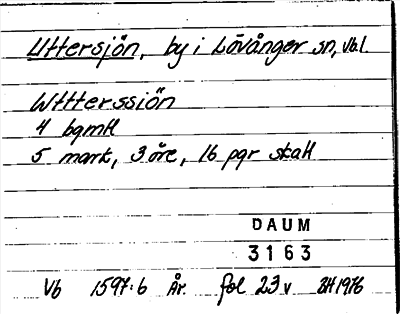 Uttersjön, by i Lövånger sn, Vb.l.
Wttterssiön
4 bgmtl
5 mark, 3 öre, 16 pgr skatt
DAUM
3163
Vb 1597:6 År. fol 23v BH 1976